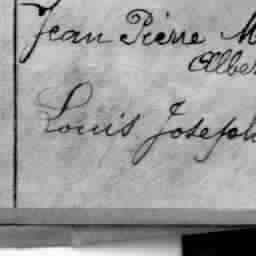 Jean Pierre M
Albe
Louis Joseph